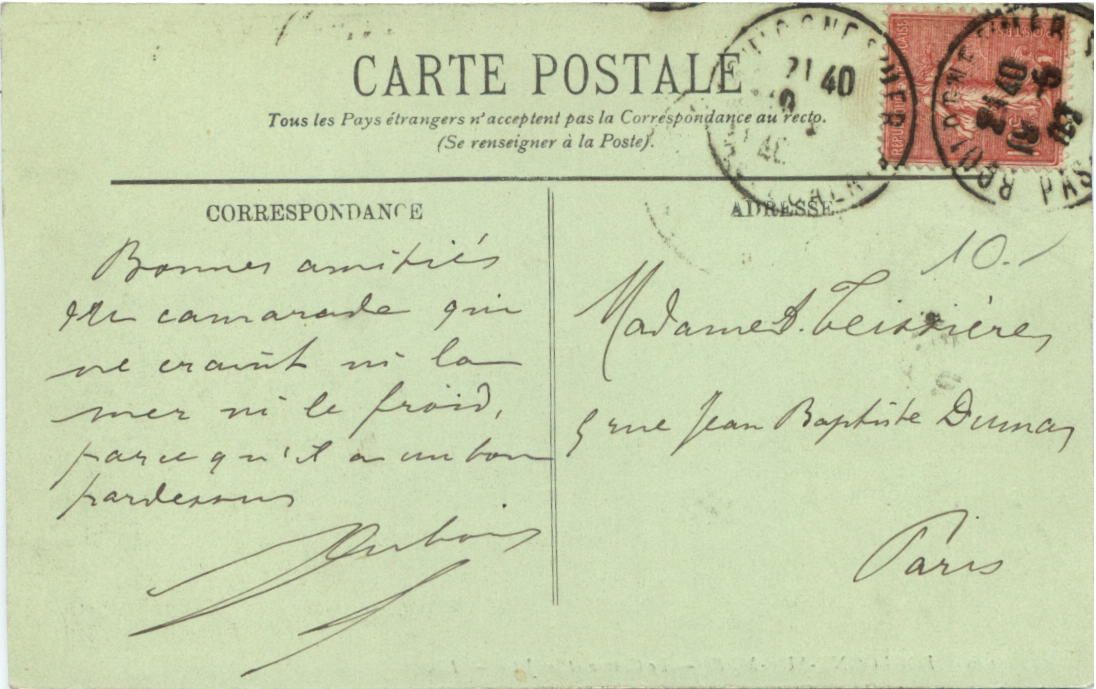 CARTE POSTALE
Tous les Pays étrangers n'acceptent pas la Correspondance au recto.
(Se renseigner à la Poste).
CORRESPONDANCE
ADRESSE
Bonnes amitiés
du camarade qui
ne craint ni la
mer ni le froid,
parce qu'il a un bon
pardessus
Dubois
10.-
Madame A. Teissières
5 rue Jean Baptiste Dumas
Paris
21 40